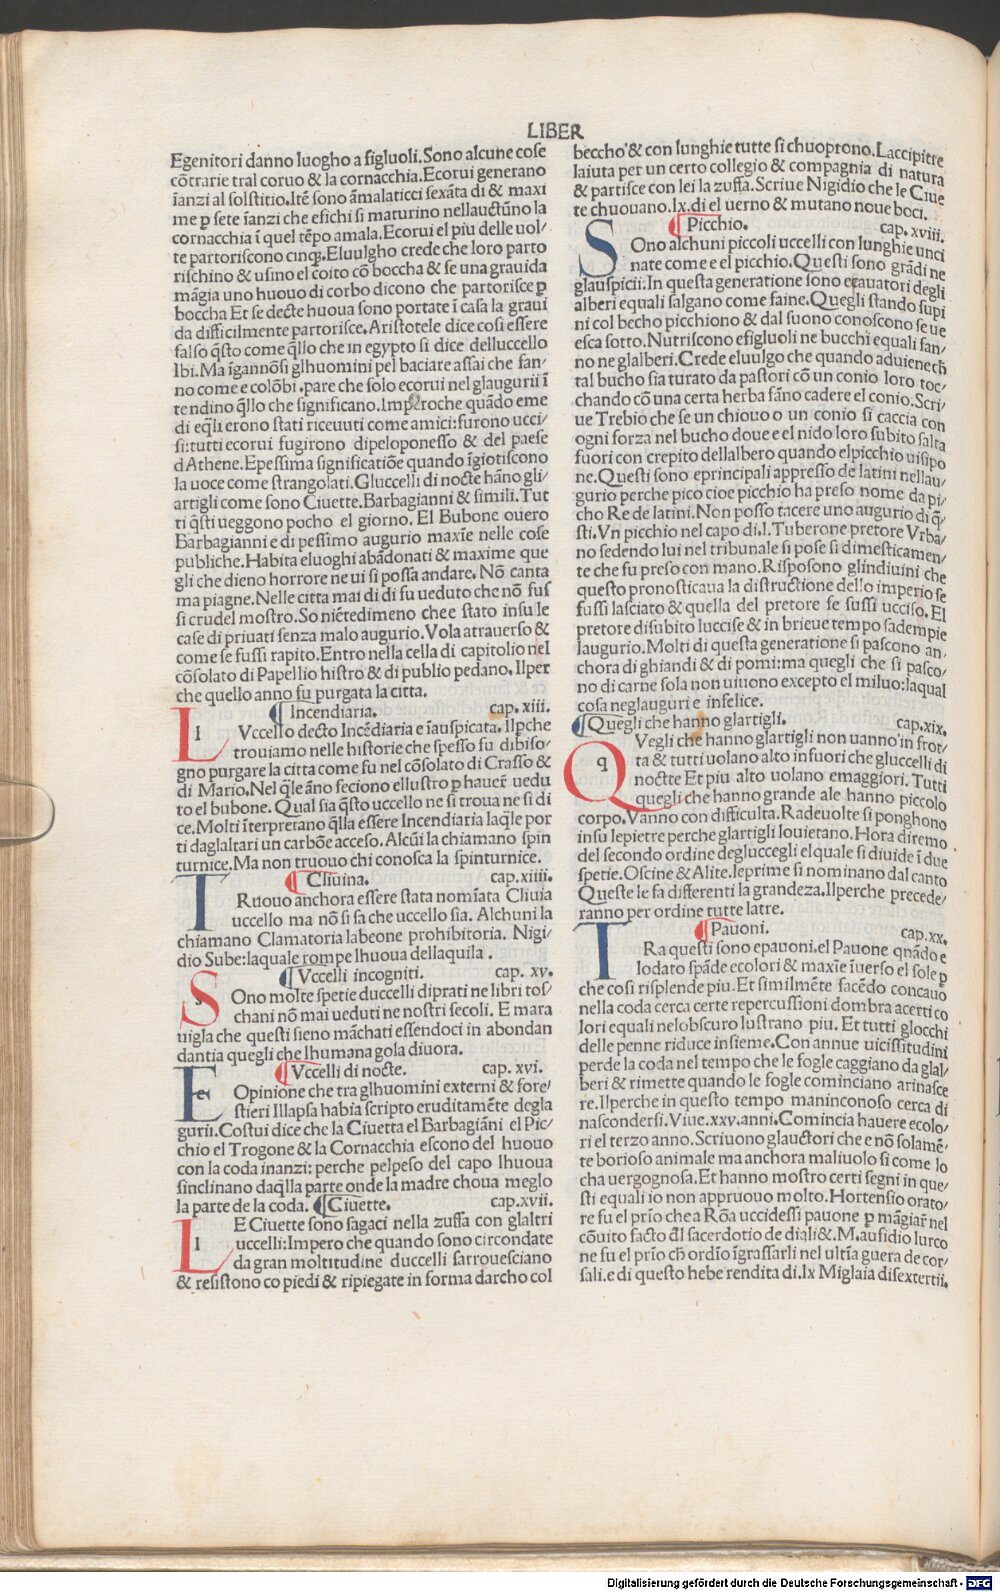 LIBER
Egenitori danno luogho a figluoli. Sono alcune cose
cõtrarie tral coruo & la cornacchia. Ecorui generano
ĩanzi al solstitio. Itẽ sono ãmalaticci sexãta di & maxi
me ꝑ sete ĩanzi che efichi si maturino nellauctũno la
cornacchia ĩ quel tẽpo amala. Ecorui el piu delle uol/
te partoriscono cinqꝫ. Eluulgho crede che loro parto
rischino & usino el coito cõ boccha & se una grauida
mãgia uno huouo di corbo dicono che partorisce ꝑ
boccha Et se decte huoua sono portate ĩ casa la graui
da difficilmente partorisce. Aristotele dice cosi essere
falso q̃sto come q̃llo che in egypto si dice delluccello
Ibi. Ma ĩgannõsi glhuomini pel baciare assai che fan/
no come e colõbi .pare che solo ecorui nel glaugurii ĩ
tendino q̃llo che significano. Imperoche quãdo eme
di eq̃li erono stati riceuuti come amici: furono ucci/
si: tutti ecorui fugirono dipeloponesso & del paese
dAthene. Epessima significatiõe quando ĩgiotiscono
la uoce come strangolati. Gluccelli di nocte hãno gli/
artigli come sono Ciuette. Barbagianni & simili. Tut
ti q̃sti ueggono pocho el giorno. El Bubone ouero
Barbagianni e di pessimo augurio maxĩe nelle cose
publiche. Habita eluoghi abãdonati & maxime que
gli che dieno horrore ne ui si possa andare. Nõ canta
ma piagne. Nelle citta mai di di fu ueduto che nõ fus
si crudel mostro. So niẽtedimeno chee stato insu le
case di priuati senza malo augurio. Vola atrauerso &
come se fussi rapito. Entro nella cella di capitolio nel
cõsolato di Papellio histro & di publio pedano. Ilper
che quello anno fu purgata la citta.
¶ Incendiaria. cap. xiii.
L l Vccello decto Incẽdiaria e ĩauspicata. Ilpche
trouiamo nelle historie che spesso fu dibiso/
gno purgare la citta come fu nel cõsolato di Crasso &
di Mario. Nel q̃le ãno feciono ellustro ꝑ hauer uedu
to el bubone. Qual sia q̃sto uccello ne si troua ne si di
ce. Molti ĩterpretano q̃lla essere Incendiaria laq̃le por
ti daglaltari un carbõe acceso. Alcũi la chiamano spin
turnice. Ma non truouo chi conosca la spinturnice.
¶ Cliuina. cap. xiiii.
T Ruouo anchora essere stata nomĩata Cliuia
uccello ma nõ si sa che uccello sia. Alchuni la
chiamano Clamatoria labeone prohibitoria. Nigi/
dio Sube: laquale rompe lhuoua dellaquila .
¶ Vccelli incogniti. cap. xv.
S s Ono molte spetie duccelli diprati ne libri tos/
chani nõ mai ueduti ne nostri secoli. E mara
uigla che questi sieno mãchati essendoci in abondan
dantia quegli che lhumana gola diuora.
¶ Vccelli di nocte. cap. xvi.
E e Opinione che tra glhuomini externi & fore/
stieri Illapsa habia scripto eruditamẽte degla
gurii. Costui dice che la Ciuetta el Barbagiãni el Pic/
chio el Trogone & la Cornacchia escono del huouo
con la coda inanzi: perche pelpeso del capo lhuoua
sinclinano daq̃lla parte onde la madre choua meglo
la parte de la coda. ¶ Ciuette. cap. xvii.
L l E Ciuette sono sagaci nella zuffa con glaltri
uccelli: Impero che quando sono circondate
da gran moltitudine duccelli sarrouesciano
& resistono co piedi & ripiegate in forma darcho col
beccho & con lunghie tutte si chuoprono. Laccipitre
laiuta per un certo collegio & compagnia di natura
& partisce con lei la zuffa. Scriue Nigidio che le Ciue
te chuouano. lx. di el uerno & mutano noue boci.
¶ Picchio. cap. xviii.
S Ono alchuni piccoli uccelli con lunghie unci
nate come e el picchio. Questi sono grãdi ne
glauspicii: In questa generatione sono ecauatori degli
alberi equali salgano come faine. Quegli stando supi
ni col becho picchiono & dal suono conoscono se ue
esca sotto. Nutriscono efigluoli ne bucchi equali fan/
no ne glalberi. Crede eluulgo che quando aduiene cħ
tal bucho sia turato da pastori cõ un conio loro toc/
chando cõ una certa herba fãno cadere el conio. Scri/
ue Trebio che se un chiouo o un conio si caccia con
ogni forza nel bucho doue e el nido loro subito salta
fuori con crepito dellalbero quando elpicchio uisipo
ne. Questi sono eprincipali appresso de latini nellau/
gurio perche pico cioe picchio ha preso nome da pi/
cho Re de latini. Non posso tacere uno augurio di q̃/
sti. Vn picchio nel capo di. l. Tuberone pretore Vrba/
no sedendo lui nel tribunale si pose si dimesticamen/
te che fu preso con mano. Risposono glindiuini che
questo pronosticaua la distructione dello imperio se
fussi lasciato & quella del pretore se fussi ucciso. El
pretore disubito luccise & in brieue tempo sadempie
laugurio. Molti di questa generatione si pascono an/
chora di ghiandi & di pomi: ma quegli che si pasco/
no di carne sola non uiuono excepto el miluo: laqual
cosa neglauguri e infelice.
¶ Quegli che hanno glartigli. cap. xix.
Q q Vegli che hanno glartigli non uanno in frot/
ta & tutti uolano alto infuori che gluccelli di
nocte Et piu alto uolano emaggiori. Tutti
quegli che hanno grande ale hanno piccolo
corpo. Vanno con difficulta. Radeuolte si ponghono
insu lepietre perche glartigli louietano. Hora diremo
del secondo ordine degluccegli el quale si diuide ĩ due
spetie. Oscine & Alite. leprime si nominano dal canto
Queste le fa differenti la grandeza. Ilperche precede/
ranno per ordine tutte latre.
¶ Pauoni. cap. xx.
T Ra questi sono epauoni. el Pauone quãdo e
lodato spãde ecolori & maxĩe ĩuerso el sole ꝑ
che cosi risplende piu. Et similmẽte facẽdo concauo
nella coda cerca certe repercussioni dombra acerti co
lori equali nelobscuro lustrano piu. Et tutti glocchi
delle penne riduce insieme. Con annue uicissitudini
perde la coda nel tempo che le fogle caggiano da glal/
beri & rimette quando le fogle cominciano arinasce
re. Ilperche in questo tempo maninconoso cerca di
nascondersi. Viue. xxv. anni. Comincia hauere ecolo/
ri el terzo anno. Scriuono glauctori che e nõ solamẽ/
te borioso animale ma anchora maliuolo si come lo
cha uergognosa. Et hanno mostro certi segni in que/
sti equali io non appruouo molto. Hortensio orato/
re fu el prĩo che a Rõa uccidessi pauone ꝑ mãgiar̃ nel
cõuito facto dl̃ sacerdotio de diali &. M. aufidio lurco
ne fu el prĩo cħ ordĩo ĩgrassarli nel ultĩa guera de cor/
sali. e di questo hebe rendita di. lx Miglaia disextertii.
Digitalisierung gefördert durch die Deutsche Forschungsgemeinschaft - DFG